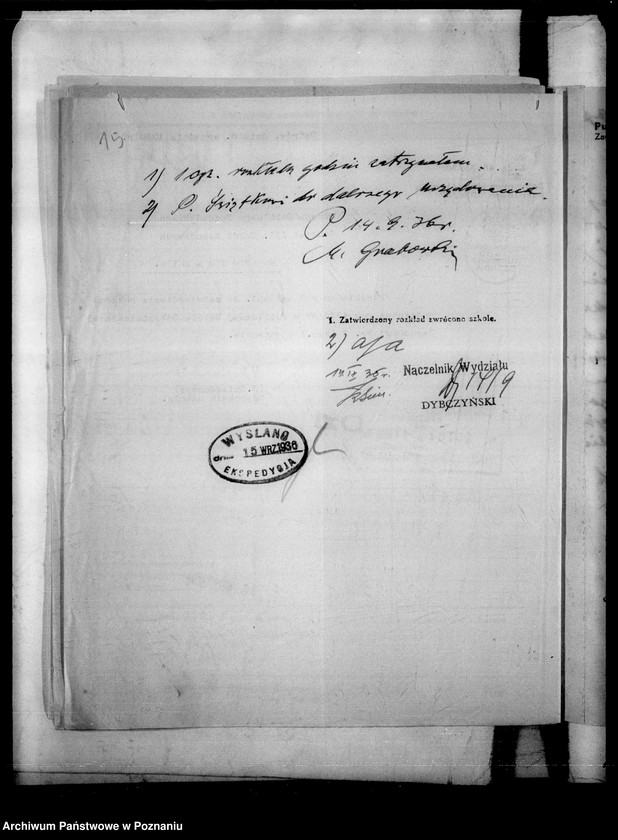 15.
1) 1 egz. rozkładu godzin zatrzymałem.
2) P. do dalszego urzędowania.
P. 14. 9. 36 r.
M. Grabowski
1. Zatwierdzony rozkład zwrócono szkole.
2) a/a
Naczelnik Wydziału
14/9
DYBCZYŃSKI
WYSŁANO
dnia 15 WRZ. 1936
EKSPEDYCJA
Pu
Za
Archiwum Państwowe w Poznaniu